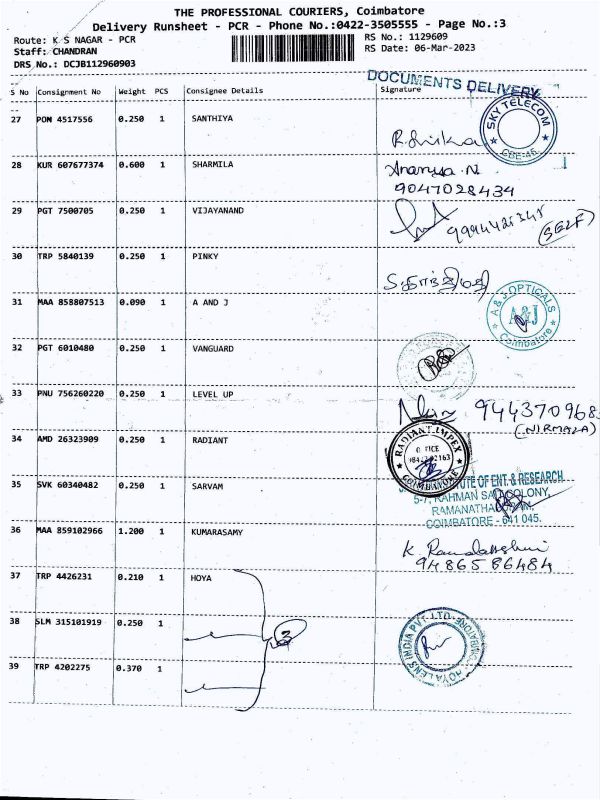 THE PROFESSIONAL COURIERS, Coimbatore
Delivery Runsheet - PCR - Phone No.:0422-3505555 - Page No.:3
Route: K S NAGAR - PCR
Staff: CHANDRAN
DRS No.: DCJB112960903
RS No.: 1129609
RS Date: 06-Mar-2023
DOCUMENTS DELIVERY
S No Consignment No Weight PCS Consignee Details Signature
27 PON 4517556 0.250 1 SANTHIYA
SKY TELECOM
CBE-45
28 KUR 607677374 0.600 1 SHARMILA Ananya.N
9047028434
29 PGT 7500705 0.250 1 VIJAYANAND
(SELF)
30 TRP 5840139 0.250 1 PINKY
31 MAA 858807513 0.090 1 A AND J
A & J OPTICALS
A&J
Coimbatore
32 PGT 6010480 0.250 1 VANGUARD
33 PNU 756260220 0.250 1 LEVEL UP
(NIRMALA)
34 AMD 26323909 0.250 1 RADIANT
RADIANT IMPEX
COIMBATORE
35 SVK 60340482 0.250 1 SARVAM
OF ENT. & RESEARCH
COLONY,
COIMBATORE - 641 045.
36 MAA 859102966 1.200 1 KUMARASAMY
9486586484
37 TRP 4426231 0.210 1 HOYA
38 SLM 315101919 0.250 1
3
HOYA LENS INDIA PVT. LTD.
39 TRP 4202275 0.370 1